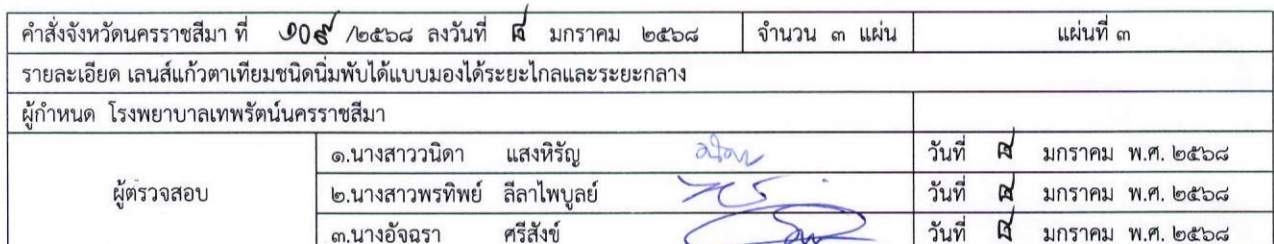 คำสั่งจังหวัดนครราชสีมา ที่ ๑๐๙ /๒๕๖๘ ลงวันที่ ๘ มกราคม ๒๕๖๘ จำนวน ๓ แผ่น แผ่นที่ ๓
รายละเอียด เลนส์แก้วตาเทียมชนิดนิ่มพับได้แบบมองได้ระยะไกลและระยะกลาง
ผู้กำหนด โรงพยาบาลเทพรัตน์นครราชสีมา
๑.นางสาววนิดา แสงหิรัญ วันที่ ๘ มกราคม พ.ศ. ๒๕๖๘
ผู้ตรวจสอบ ๒.นางสาวพรทิพย์ ลีลาไพบูลย์ วันที่ ๘ มกราคม พ.ศ. ๒๕๖๘
๓.นางอัจฉรา ศรีสังข์ วันที่ ๘ มกราคม พ.ศ. ๒๕๖๘